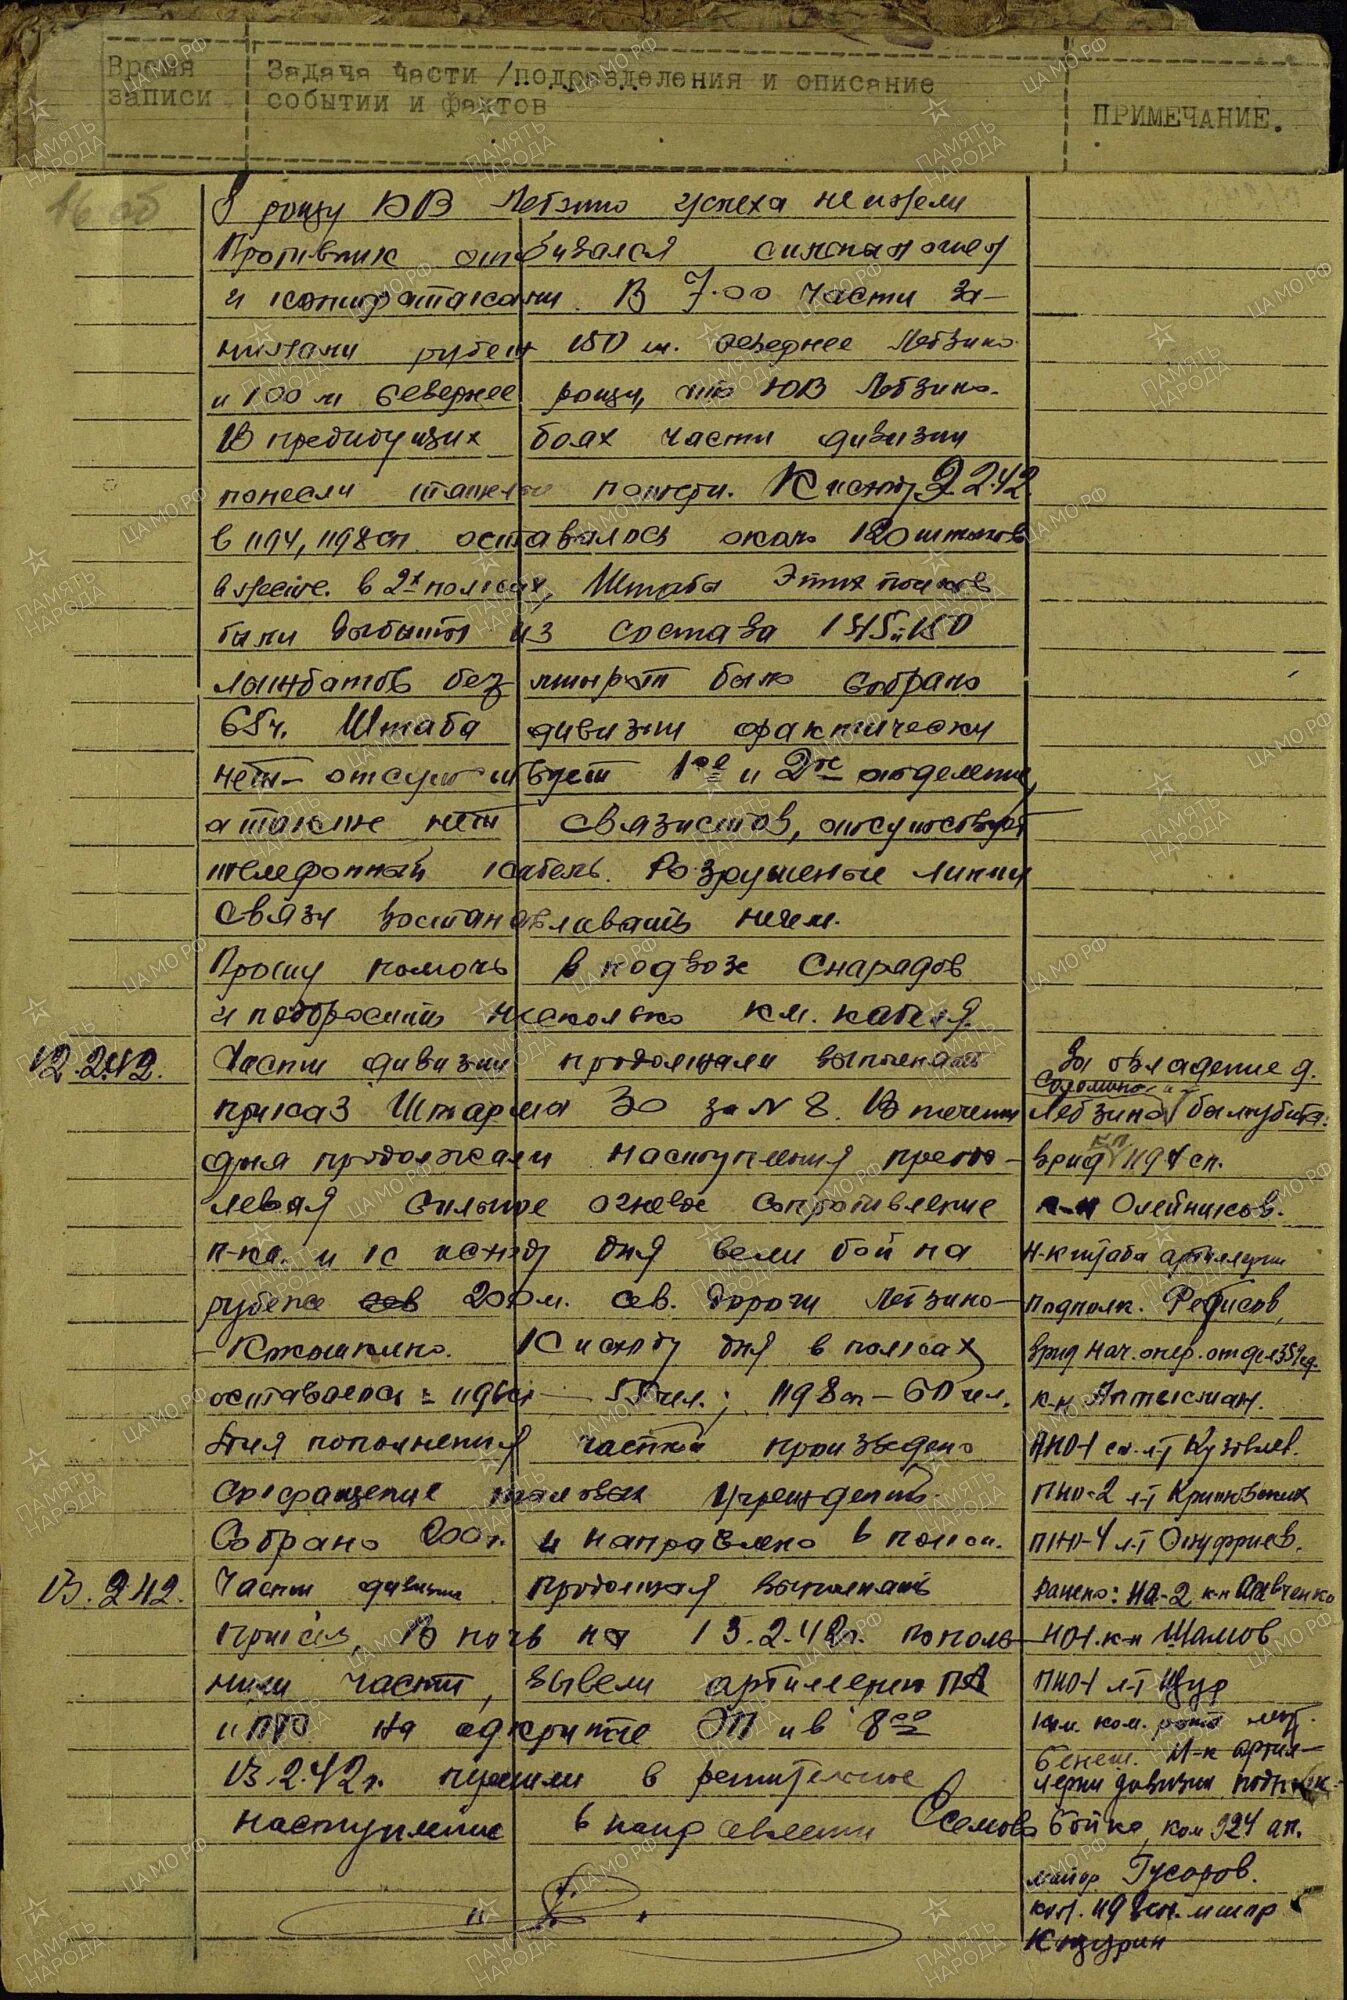 Время записи
Задача части /подразделения и описание событии и фактов
ПРИМЕЧАНИЕ.
16 об
рощу ЮВ Лебзино успеха не имели
Противник отбивался сильным огнем
и контратаками. В 7.00 части за-
нимали рубеж 150 м. севернее Лебзино
и 100 м севернее рощи, что ЮВ Лебзино.
В предидущих боях части дивизии
понесли тяжелые потери. К исходу 9.2.42.
в 1194, 1198 сп. оставалось около 120 штыков
в 2х полках, Штабы Этих полков
были выбиты из состава 145 и 150
лыжбатов без было собрано
65 ч. Штаба дивизии фактически
нет - отсутствует 1ое и 2ое отделение,
а также нет связистов, отсутствует
телефонный кабель. Разрушеные линии
связи востанавливать нечем.
Прошу помочь в подвозе Снарядов
и подбросить несколько км. кабеля.
12.2.42. Части дивизии продолжали выполнять
приказ Штарма 30 за № 8. В течении
дня продолжали наступления преодо-
левая сильное огневое сопротивление
п-ка. и к исходу дня вели бой на
рубеже 200 м. сев. дороги Лебзино-
- Кокошкино. К исходу дня в полках
оставалось: 1196 сп - 55 чел.; 1198 сп - 60 чел.
Для пополнения частей произведено
сокращение тыловых учреждений.
Собрано 200 ч. и направлено в полки.
13.2.42. Части дивизии продолжая выполнять
приказ, В ночь на 13.2.42 г. пополь-
нили части, вывели артиллерию ПА
и ПТО на аткритые ОП и в 8 00
13.2.42 г. перешли в решительное
наступление в направлении Соломино
За овладение д.
Соломино и
Лебзино были убиты:
врид кп 1194 сп.
к-н Олейников.
н-к штаба артиллерии
подполк. Ревисов,
врид нач. опер. отдел 359 сд.
к-н
ПНО-1 ст. л-т Кузовлев.
ПНО-2 л-т
ПНО-4 л-т Онуфриев.
Ранено: НО-2 к-н Савченко
НО1. к-н Шамов
ПНО-1 л-т Щур
ком. рота лейт.
Бенеш. Н-к артил-
лерии дивизии подполк.
Бойко, ком 924 ап.
майор Гусаров.
ком. 1198 сп. майор
Кацурин